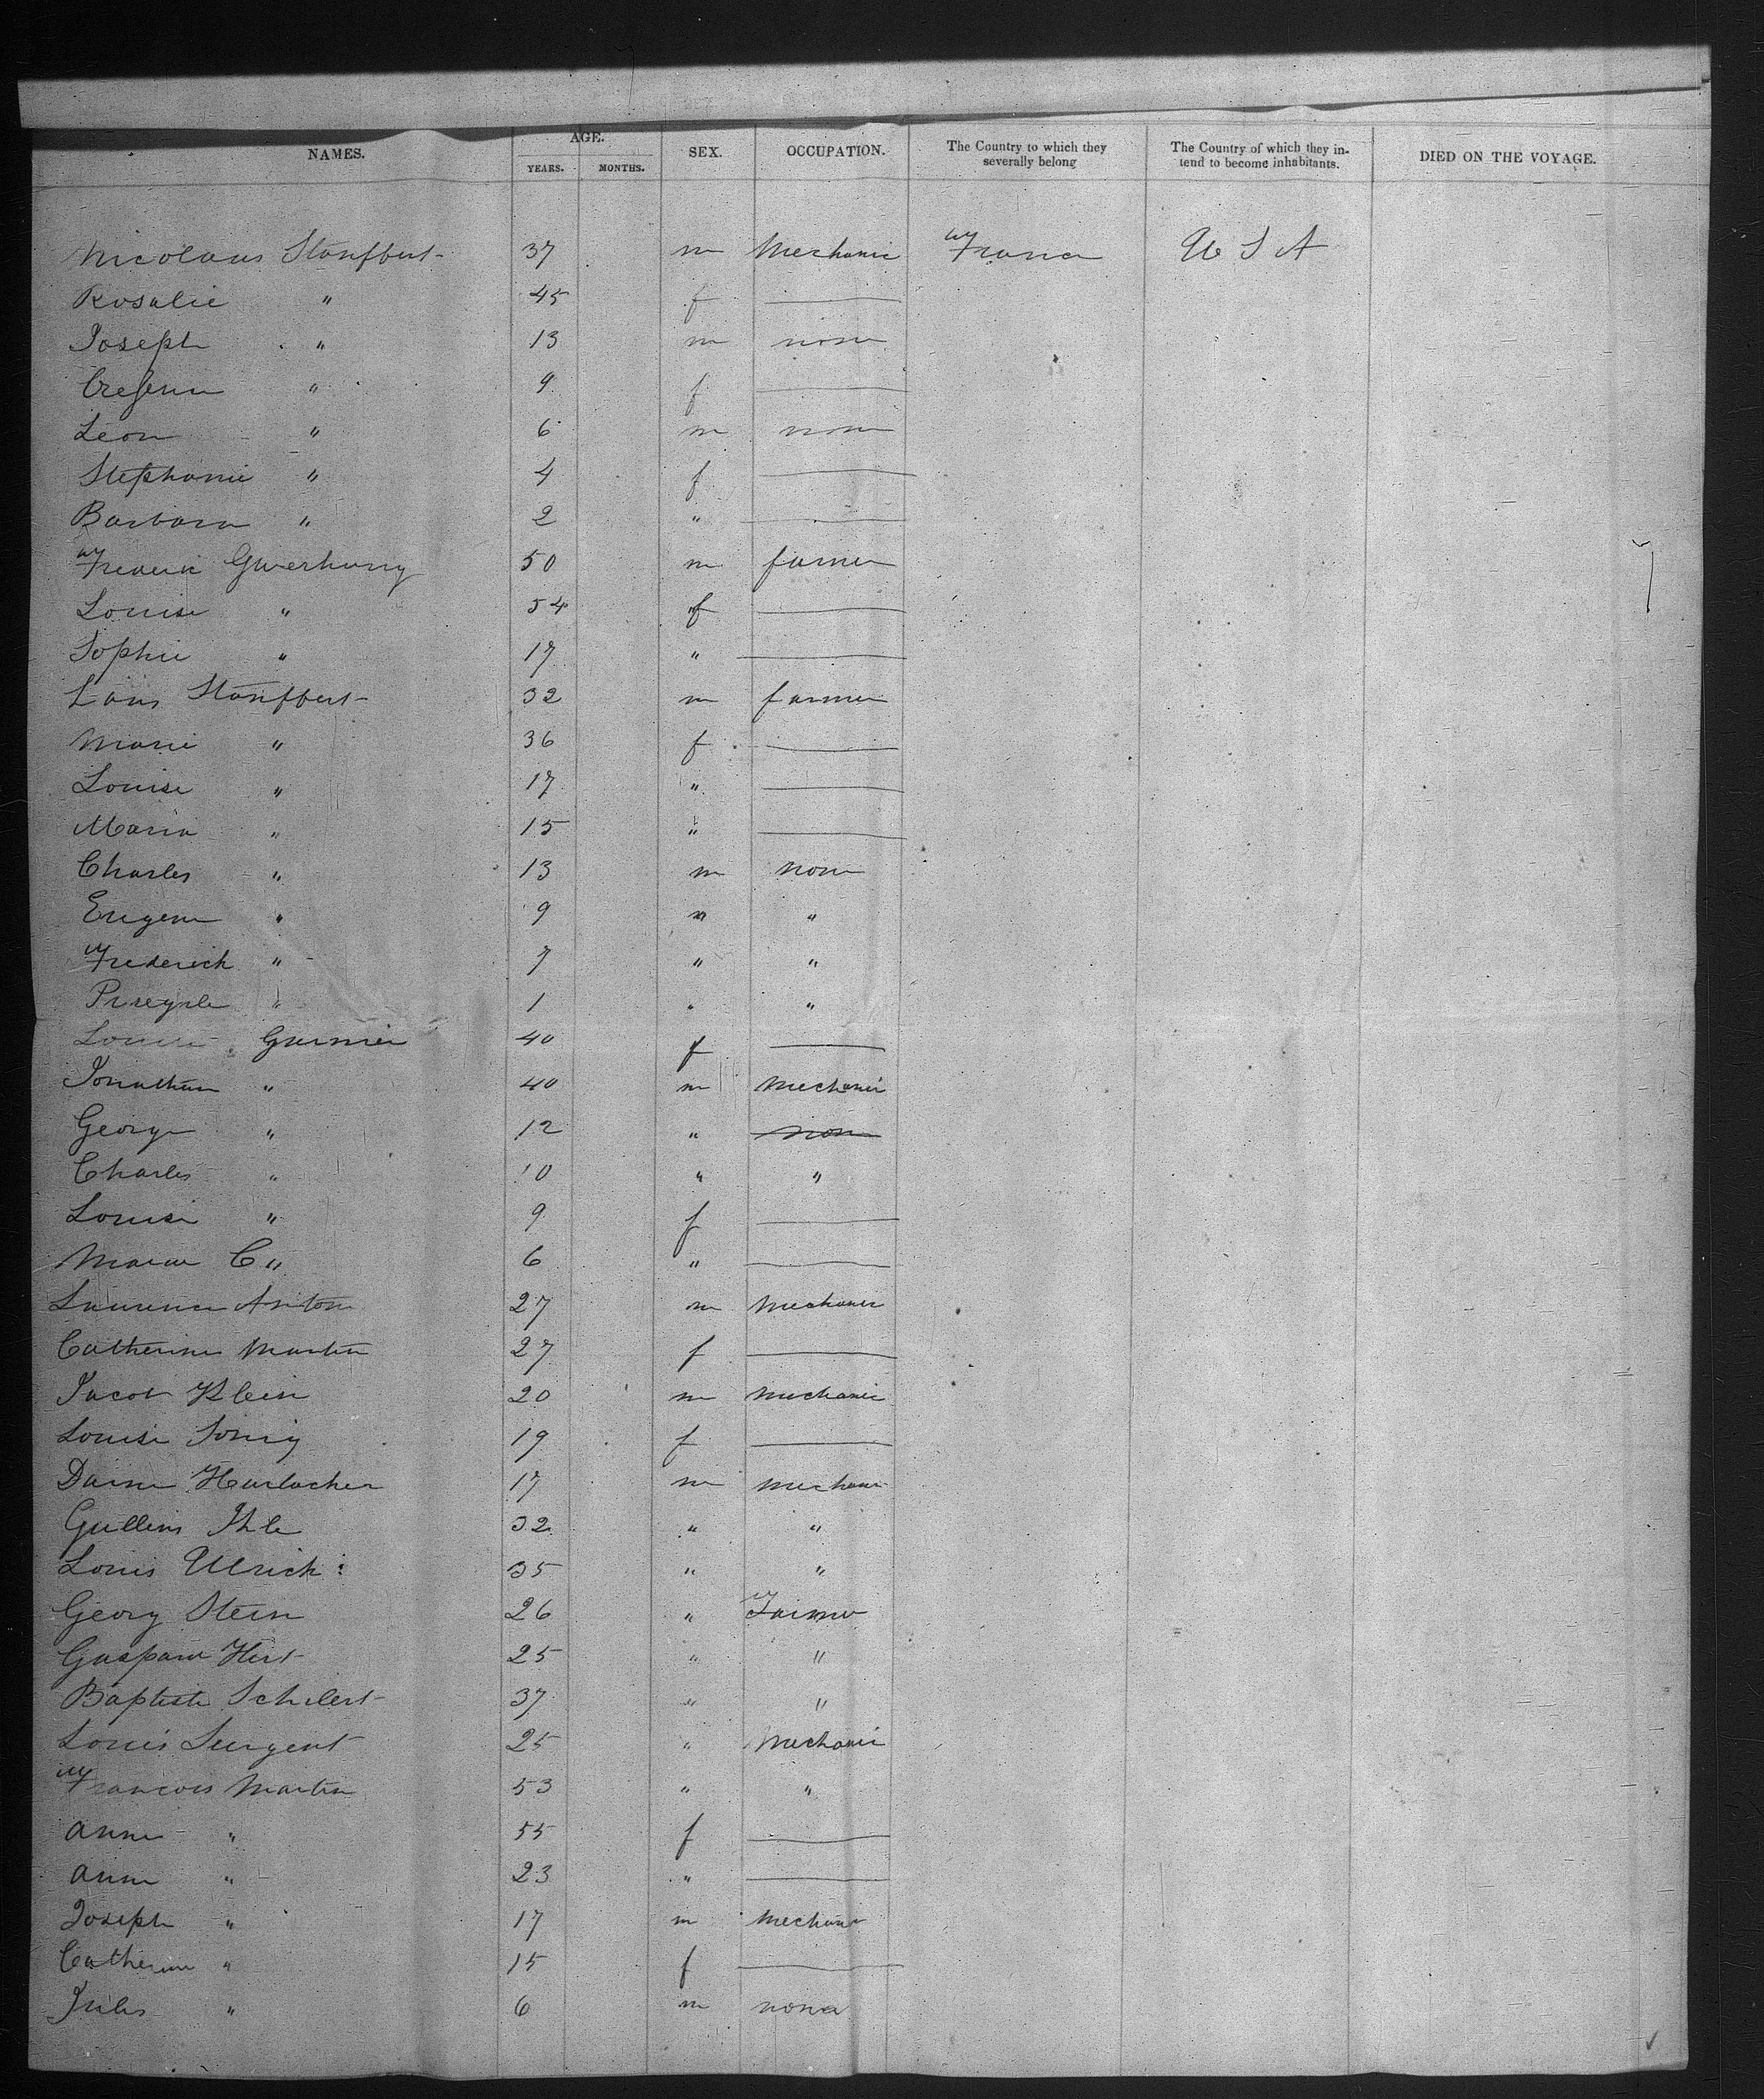 NAMES. AGE. YEARS. MONTHS. SEX. OCCUPATION. The Country to which they severally belong The Country of which they intend to become inhabitants. DIED ON THE VOYAGE.
Nicolaus 37 m Mechanic France U S A
Rosalie " 45 f
Joseph " 13 m none
" 9 f
Leon " 6 m none
Stephanie " 4 f
Barbara " 2 "
Frederic 50 m farmer
Louise " 54 f
Sophie " 17 "
Louis 32 m farmer
Marie " 36 f
Louise " 17 "
Maria " 15 "
Charles " 13 m none
Eugene " 9 " "
Frederich " 7 " "
" 1 " "
Louise Garnier 40 f
Jonathan " 40 m Mechanic
George " 12 " none
Charles " 10 " "
Louise " 9 f
C " 6 "
Laurence Anton 27 m Mechanic
Catherine Martin 27 f
Jacob Klein 20 m Mechanic
Louise 19 f
Harlacher 17 m Mechanic
Ihle 32 " "
Louis Ullrich : 35 " "
Georg Stein 26 " Farmer
Gaspare Hirt 25 " "
Baptiste 37 " "
Louis 25 " Mechanic
Francois Martin 53 " "
Anne " 55 f
Anne " 23 "
Joseph " 17 m Mechanic
Catherine " 15 f
Jules " 6 m none